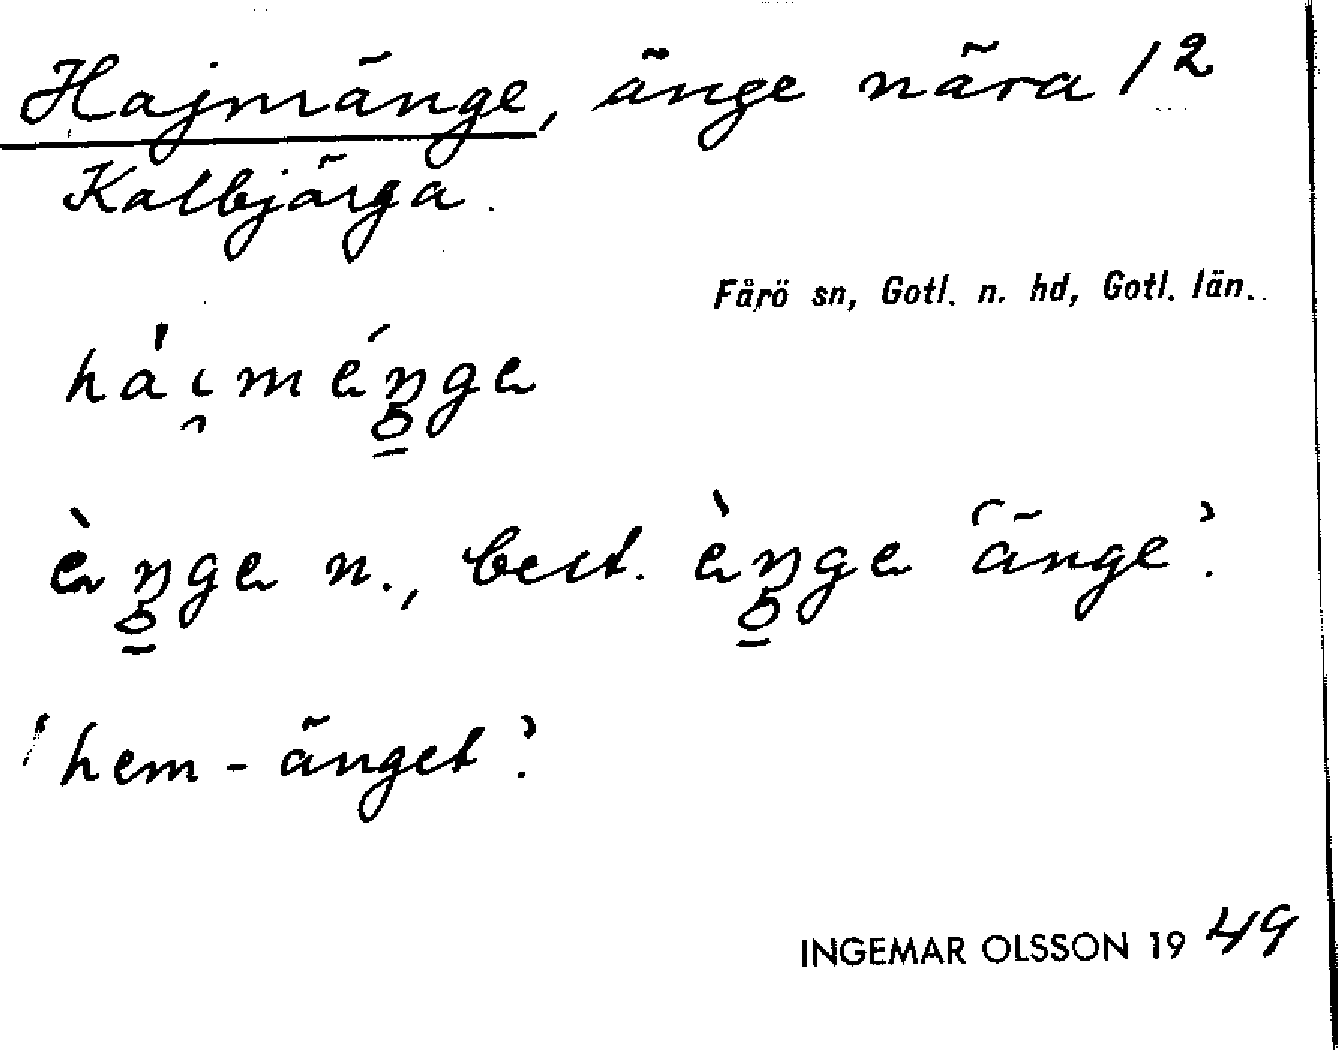 Hajmänge, änge nära 1²
Kalbjärga.
Fårö sn, Gotl. n. hd, Gotl. län.
hái̯méŋge
èŋge n., best. èŋge 'änge'.
'hem-änget'.
INGEMAR OLSSON 1949